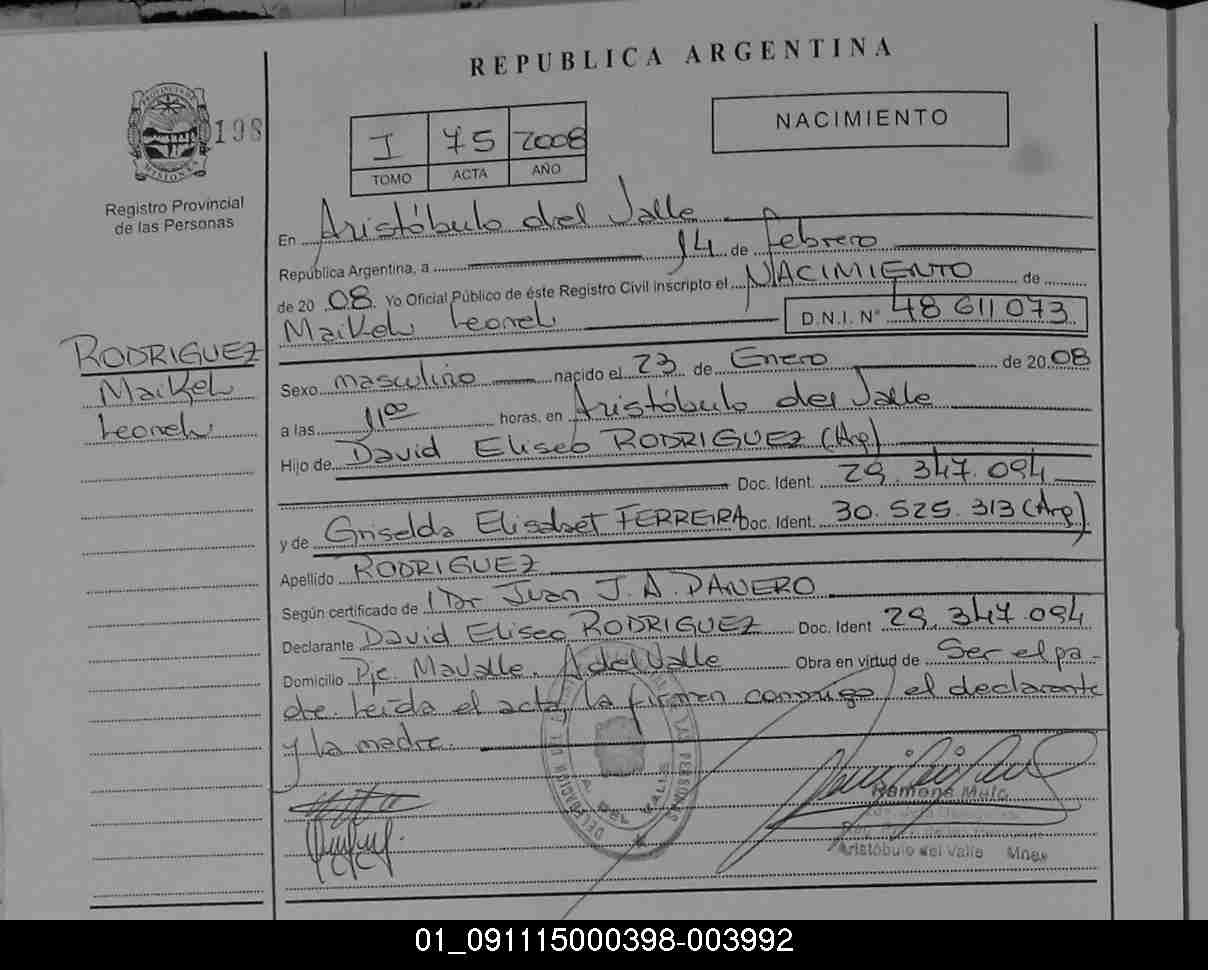 REPUBLICA ARGENTINA
PROVINCIA DE
MISIONES
198
Registro Provincial
de las Personas
I 75 2008
TOMO ACTA AÑO
NACIMIENTO
En Aristóbulo del Valle
República Argentina, a 14 de febrero
de 20 08. Yo Oficial Público de éste Registro Civil inscripto el NACIMIENTO de
Maikel Leonel D.N.I. Nº 48 611 073
RODRIGUEZ
Maikel
Leonel
Sexo masculino nacido el 23 de Enero de 20 08
a las 11 00 horas, en Aristóbulo del Valle
Hijo de David Eliseo RODRIGUEZ (Arg)
Doc. Ident. 29.347.094
y de Griselda Elisabet FERREIRA Doc. Ident. 30.525.313 (Arg)
Apellido RODRIGUEZ
Según certificado de Dr Juan J. A. DANERO
Declarante David Eliseo RODRIGUEZ Doc. Ident 29.347.094
Domicilio Pje. Mavalle. A del Valle Obra en virtud de Ser el pa-
dre leída el acta, la firman conmigo, el declarante
y la madre.
Ramona
Aristóbulo del Valle Mnes
01_091115000398-003992